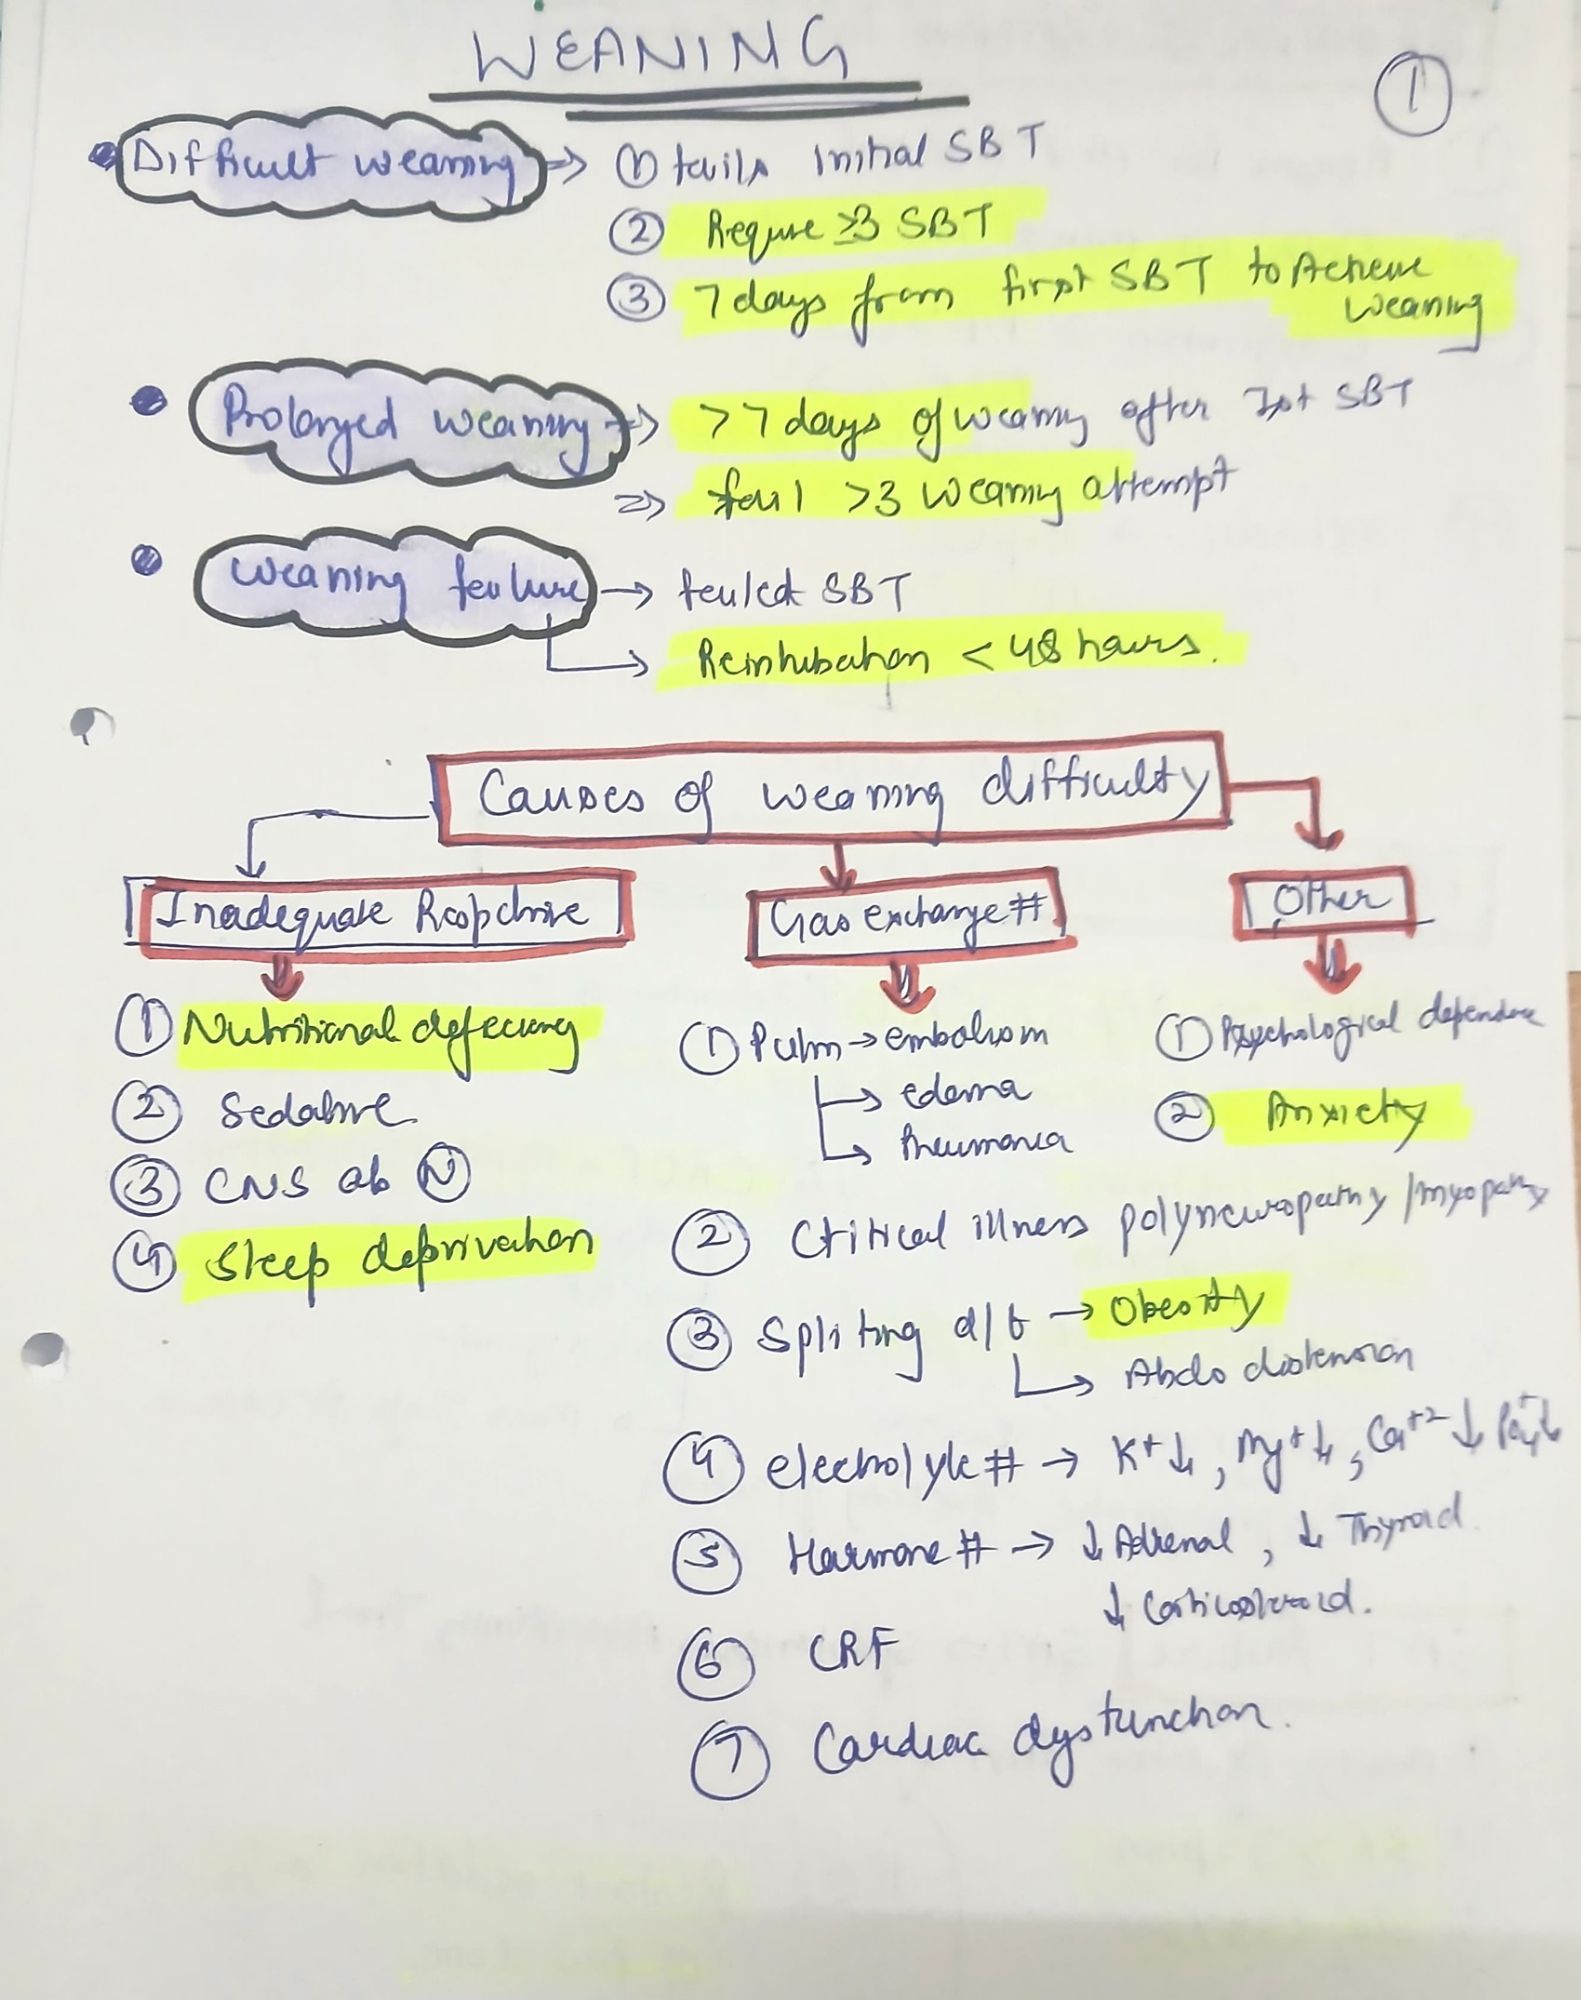 WEANING
1
Difficult weaning => ① fails Initial SBT
② Require ≥3 SBT
③ 7 days from first SBT to Achieve
weaning
Prolonged weaning => >7 days of weaning after 1st SBT
=> fail >3 weaning attempt
weaning failure → failed SBT
→ Reintubation < 48 hours.
Causes of weaning difficulty
Inadequate Resp drive
Gas exchange #
Other
① Nutritional deficiency
② Sedative
③ CNS ab N
④ Sleep deprivation
① Pulm → embolism
→ edema
→ Pneumonia
① Psychological dependence
② Anxiety
② Critical illness polyneuropathy / myopathy
③ Spliting d/t → Obesity
→ Abdo distension
④ electrolyte # → K+ ↓, Mg+ ↓, Ca+2 ↓
⑤ Harmone # → ↓ Adrenal, ↓ Thyroid.
↓ Corticosteroid.
⑥ CRF
⑦ Cardiac dysfunction.